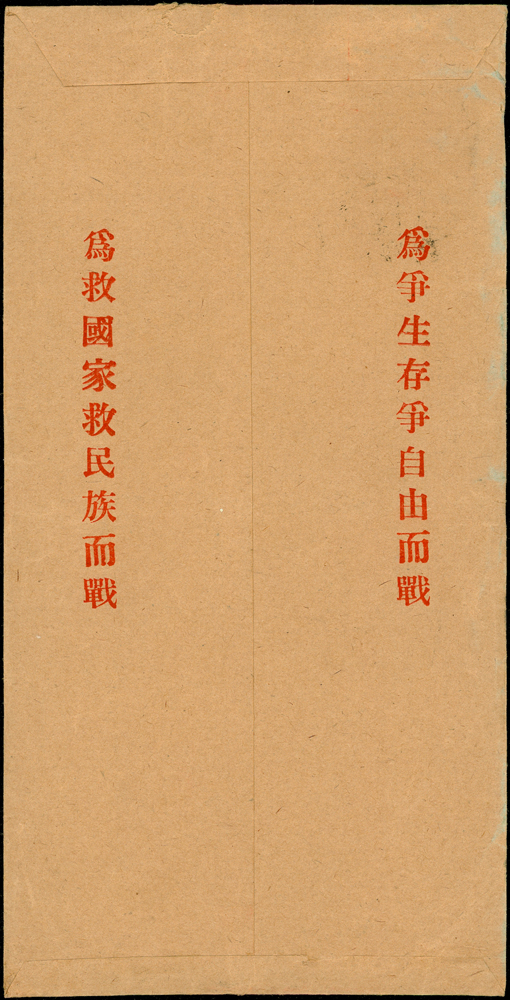 爲爭生存爭自由而戰
爲救國家救民族而戰